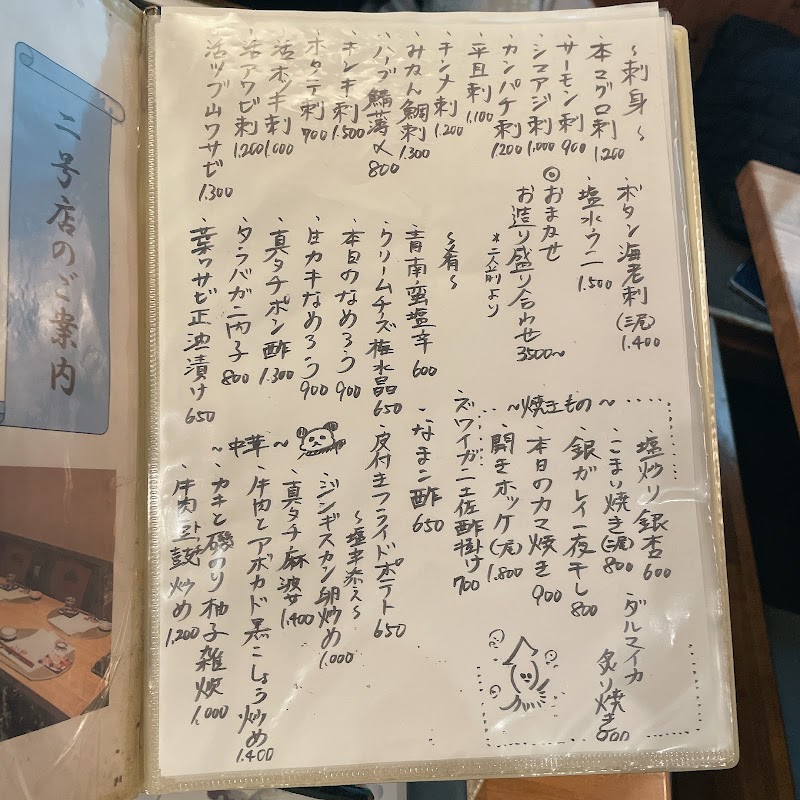 〜刺身〜
本マグロ刺 1.200
サーモン刺 900
シマアジ刺 1.000
カンパチ刺 1.200
平目刺 1.100
キンメ刺 1.200
みかん鯛刺 1.300
ハーブ鯖薄〆 800
キンキ刺 1.500
ホタテ刺 700
活ホッキ刺 1.000
活アワビ刺 1.200
活ツブ山ワサビ 1.300
ボタン海老刺(三尾) 1.400
塩水ウニ 1.500
◎おまかせ
お造り盛り合わせ 3500〜
*二人前より
〜肴〜
青南蛮塩辛 600
クリームチーズ梅水晶 650
本日のなめろう 900
甘カキなめろう 900
真タチポン酢 1.300
タラバガニ内子 800
葉ワサビ正油漬け 650
ズワイガニ土佐酢掛け 700
なまこ酢 650
皮付きフライドポテト 650
〜塩辛添え〜
〜焼きもの〜
塩炒り銀杏 600
こまい焼き(三尾) 800
銀ガレイ一夜干し 800
本日のカマ焼き 900
開きホッケ(一尾) 1.800
ダルマイカ
炙り焼き 800
〜中華〜
ジンギスカン卵炒め 1.000
真タチ麻婆 1.400
牛肉とアボカド黒こしょう炒め 1.400
カキと磯のり柚子雑炊 1.000
牛肉豆鼓炒め 1.200
二号店のご案内